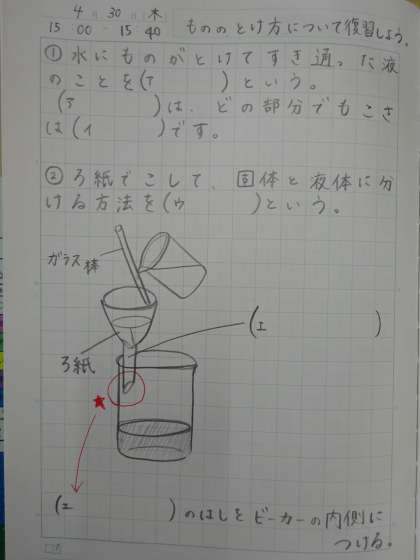 4月30日 木
15:00 - 15:40
もののとけ方について復習しよう。
① 水にものがとけてすき通った液
のことを(ア　　　)という。
(ア　　　)は、どの部分でもこさ
は(イ　　　)です。
② ろ紙でこして、固体と液体に分
ける方法を(ウ　　　)という。
ガラス棒
(エ　　　)
ろ紙
(エ　　　)のはしをビーカーの内側に
つける。